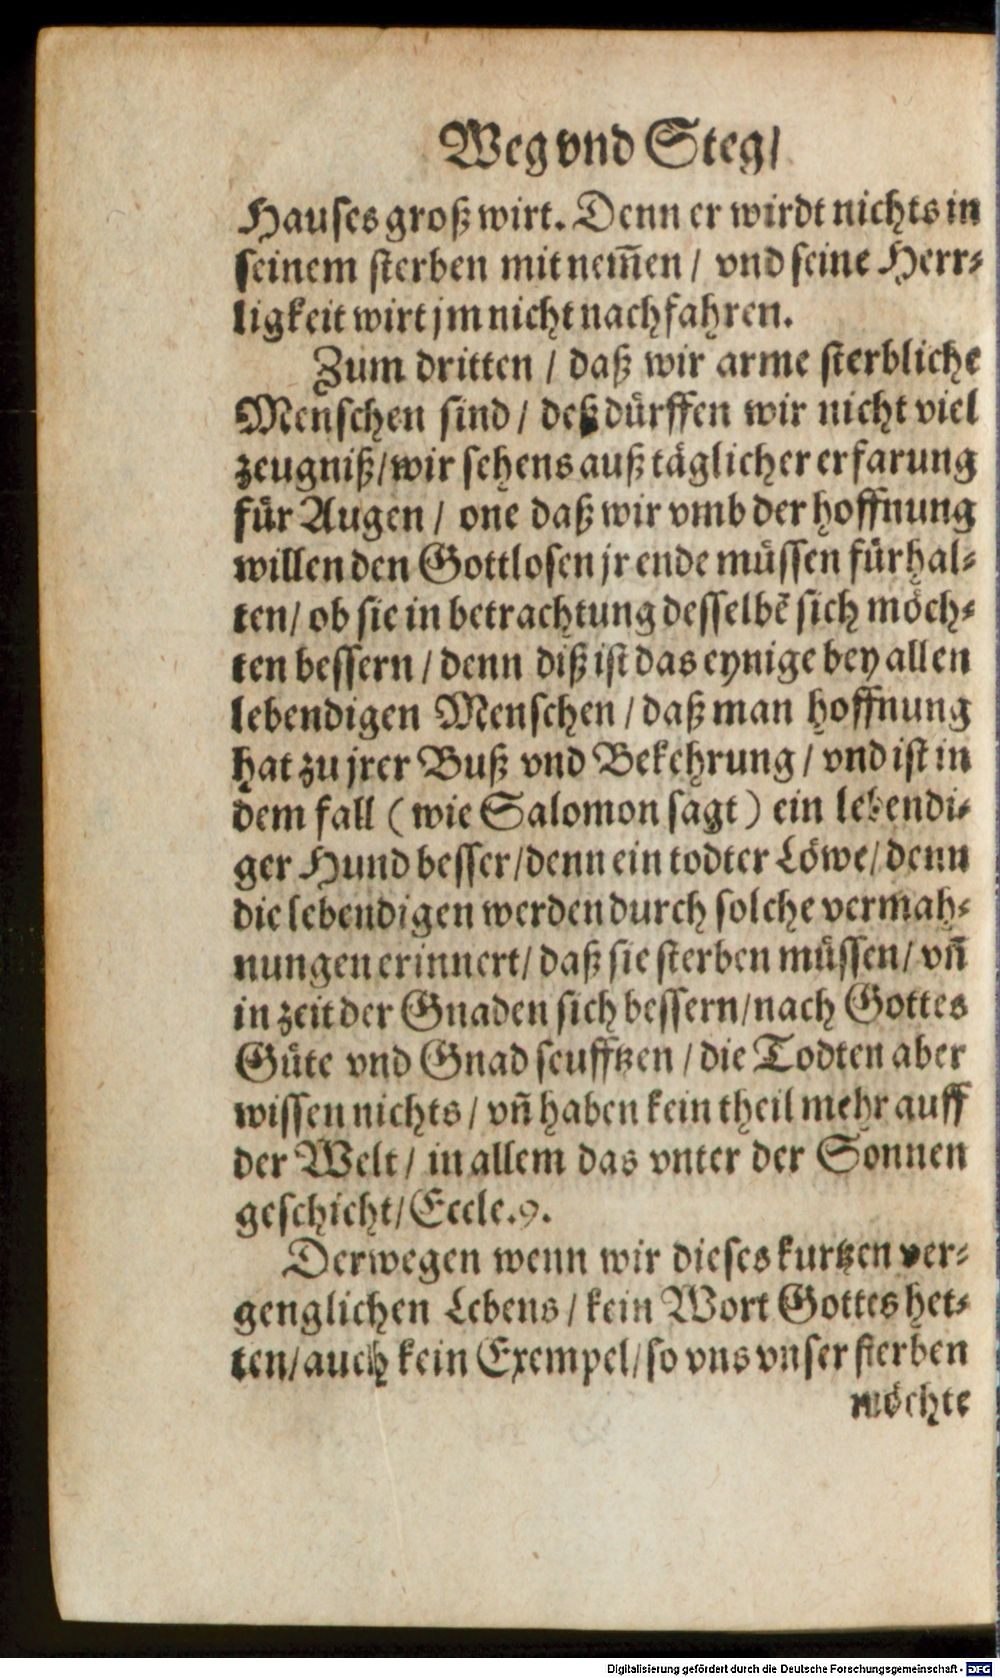 Weg vnd Steg/
Hauses groß wirt. Denn er wirdt nichts in
seinem sterben mit nem̃en / vnd seine Herr⸗
ligkeit wirt jm nicht nachfahren.
Zum dritten / daß wir arme sterbliche
Menschen sind / deß dürffen wir nicht viel
zeugniß/wir sehens auß täglicher erfarung
für Augen / one daß wir vmb der hoffnung
willen den Gottlosen jr ende müssen fürhal⸗
ten/ ob sie in betrachtung desselbẽ sich möch⸗
ten bessern / denn diß ist das eynige bey allen
lebendigen Menschen / daß man hoffnung
hat zu jrer Buß vnd Bekehrung / vnd ist in
dem fall ( wie Salomon sagt ) ein lebendi⸗
ger Hund besser/denn ein todter Löwe/ denn
die lebendigen werden durch solche vermah⸗
nungen erinnert/ daß sie sterben müssen/ vñ
in zeit der Gnaden sich bessern/nach Gottes
Güte vnd Gnad seufftzen / die Todten aber
wissen nichts / vñ haben kein theil mehr auff
der Welt / in allem das vnter der Sonnen
geschicht/ Eccle.9.
Derwegen wenn wir dieses kurtzen ver⸗
genglichen Lebens / kein Wort Gottes het⸗
ten/auch kein Exempel/ so vns vnser sterben
möchte
Digitalisierung gefördert durch die Deutsche Forschungsgemeinschaft - DFG